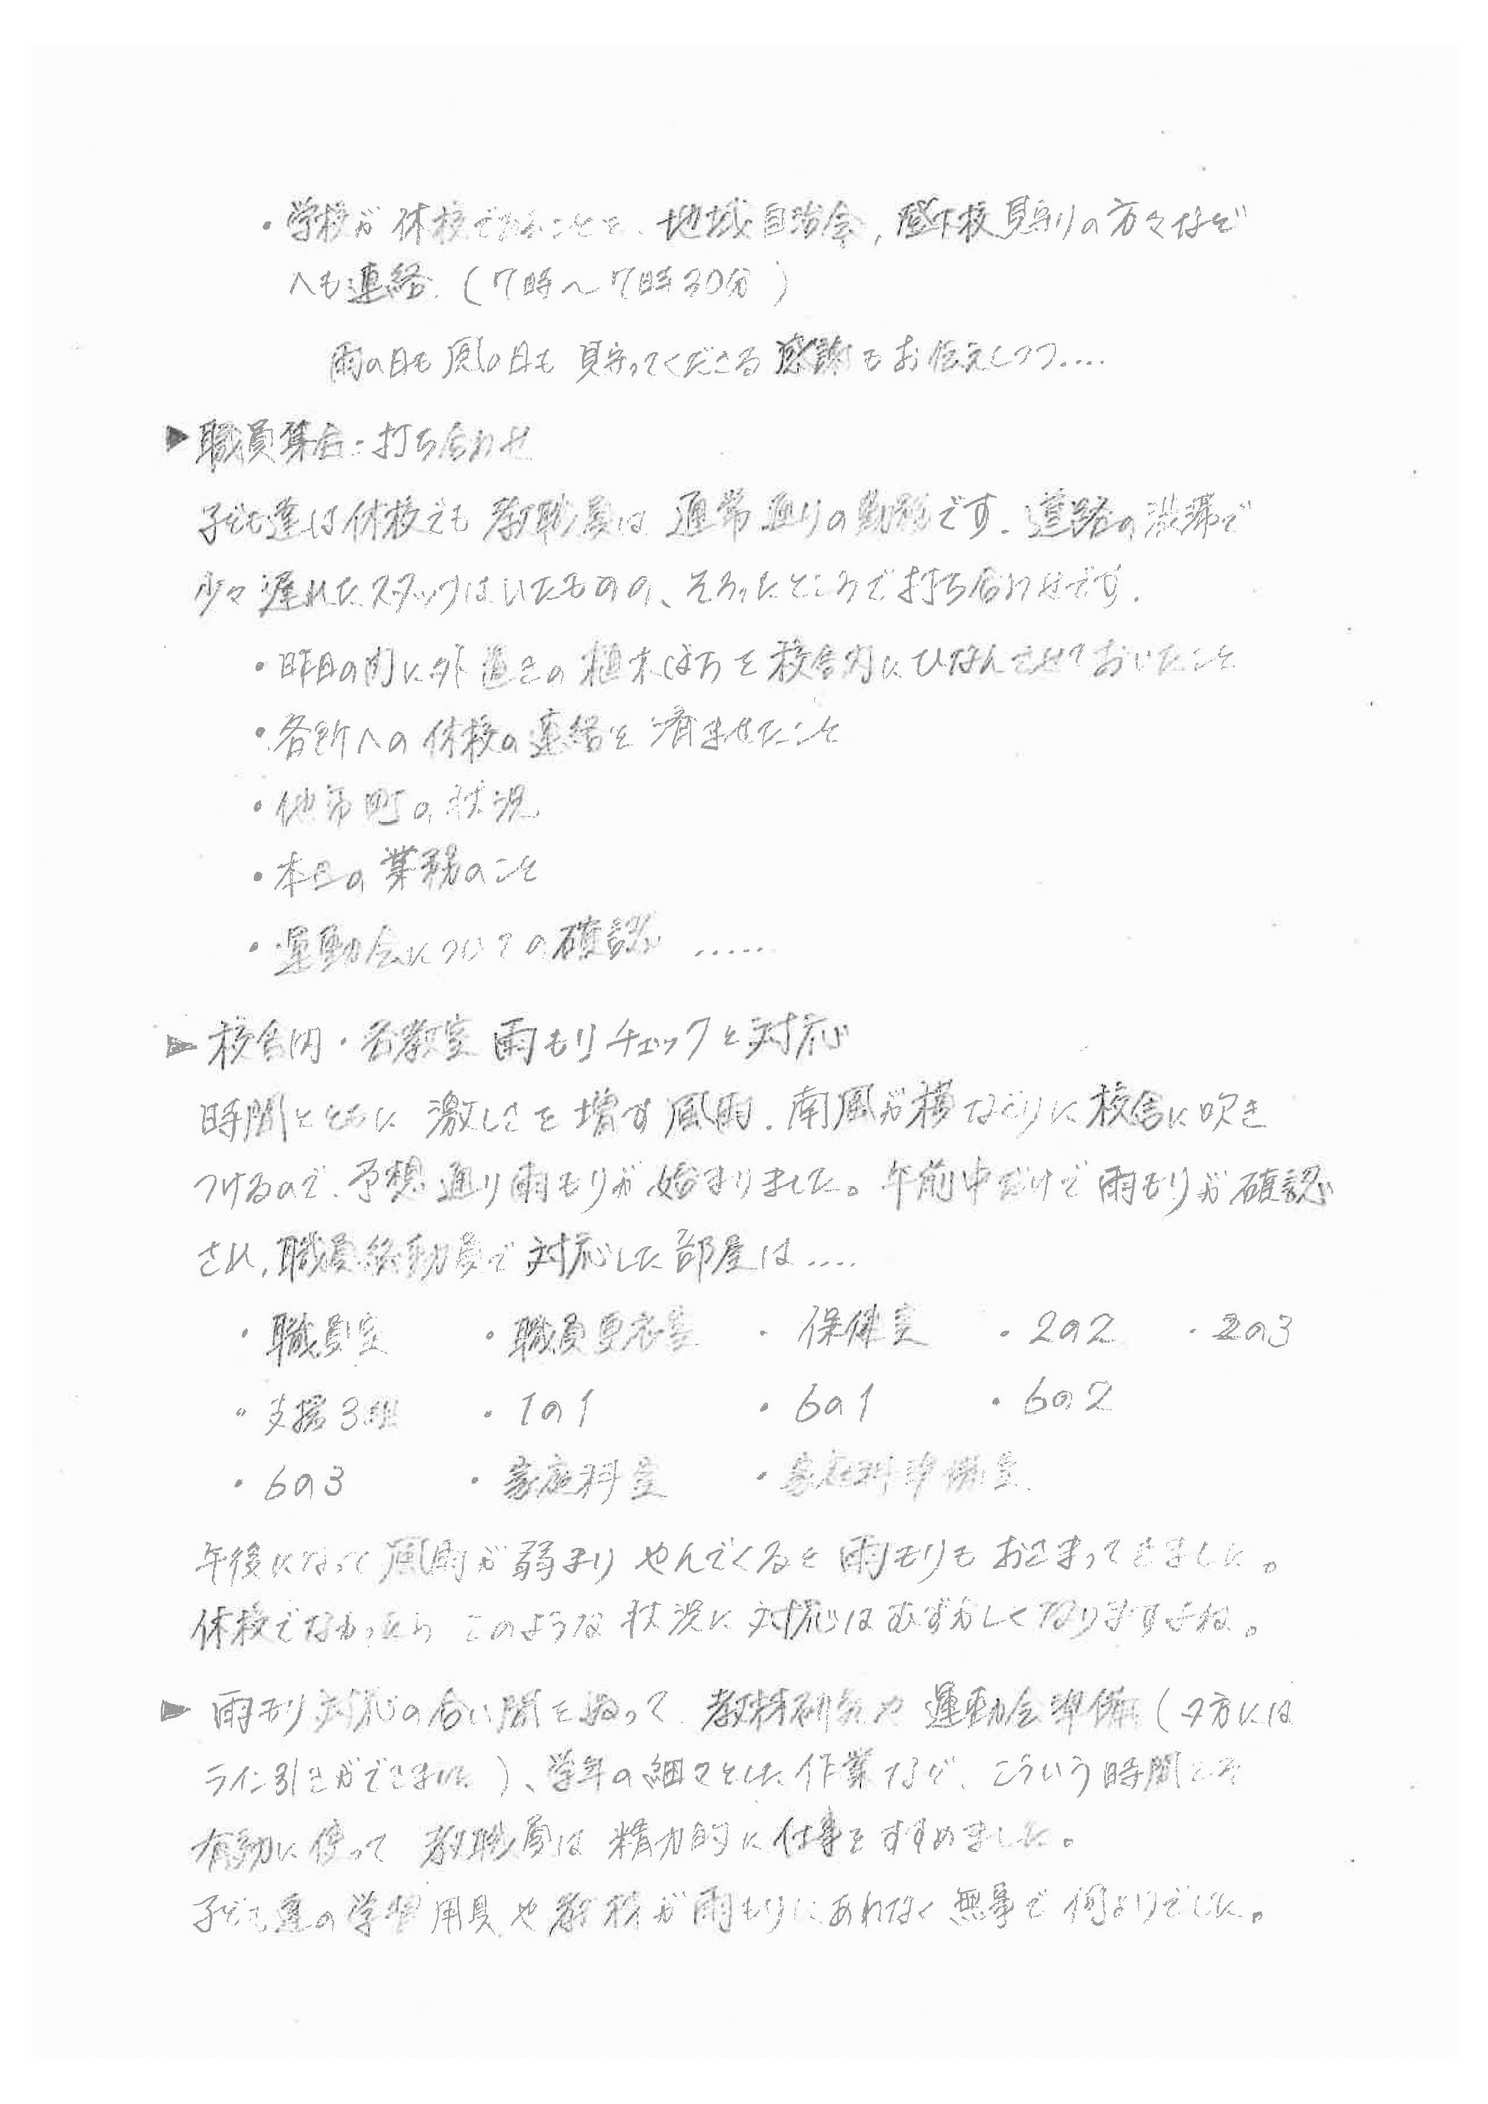 ・学校が休校であることを、地域自治会，登下校見守りの方々など
へも連絡．(7時〜7時30分)
雨の日も風の日も見守ってくださる感謝もお伝えしつつ....
▶職員集合・打ち合わせ
子ども達は休校でも教職員は通常通りの勤務です．道路の渋滞で
少々遅れたスタッフはいたものの、そろったところで打ち合わせです．
・昨日の内に外置きの植木ばちを校舎内にひなんさせておいたこと
・各所への休校の連絡を済ませたこと
・他市町の状況
・本日の業務のこと
・運動会についての確認 ......
▶校舎内・各教室 雨もりチェックと対応
時間とともに激しさを増す風雨．南風が横なぐりに校舎に吹き
つけるので、予想通り雨もりが始まりました。午前中だけで雨もりが確認
され，職員総動員で対応した部屋は....
・職員室 ・職員更衣室 ・保健室 ・2の2 ・2の3
・支援3組 ・1の1 ・6の1 ・6の2
・6の3 ・家庭科室 ・家庭科準備室
午後になって風雨が弱まりやんでくると雨もりもおさまってきました。
休校でなかったらこのような状況に対応はむずかしくなりますよね。
▶雨もり対応の合い間をぬって、教材研究や運動会準備(夕方には
ライン引きができました)、学年の細々とした作業など、こういう時間こそ
有効に使って 教職員は精力的に仕事をすすめました。
子ども達の学習用具や教材が雨もりにあれなく無事で何よりでした。